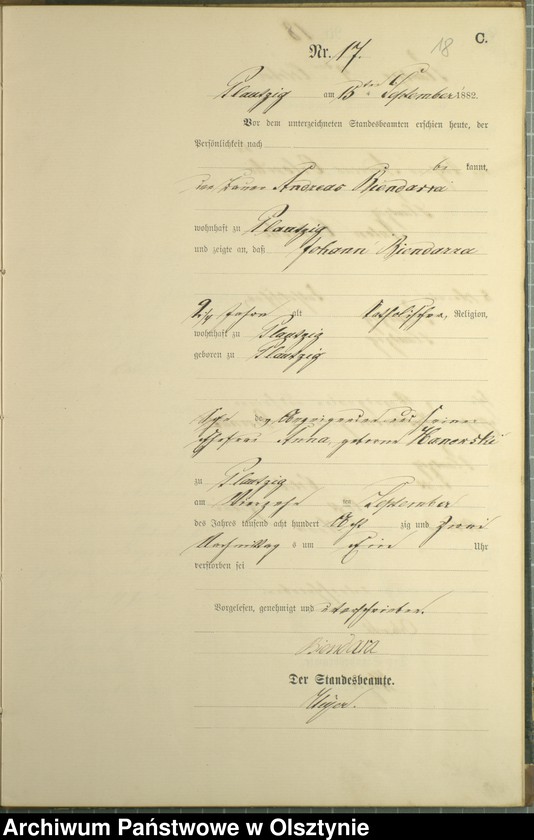 18
C.
Nr. 17.
Plautzig am 15ten September 1882.
Vor dem unterzeichneten Standesbeamten erschien heute, der
Persönlichkeit nach
be kannt,
Andreas Biendarra
wohnhaft zu Plautzig
und zeigte an, daß Johann Biendarra
Jahre alt Katholischer, Religion,
wohnhaft zu Plautzig
geboren zu Plautzig
Sohn des Anzeigenden und seiner
Ehefrau Anna, geborene
zu Plautzig
am Vierzehn ten September
des Jahres tausend acht hundert Acht zig und Zwei
Nachmittag s um Ein Uhr
verstorben sei
Vorgelesen, genehmigt und unterschrieben.
Biendara
Der Standesbeamte.
Archiwum Państwowe w Olsztynie